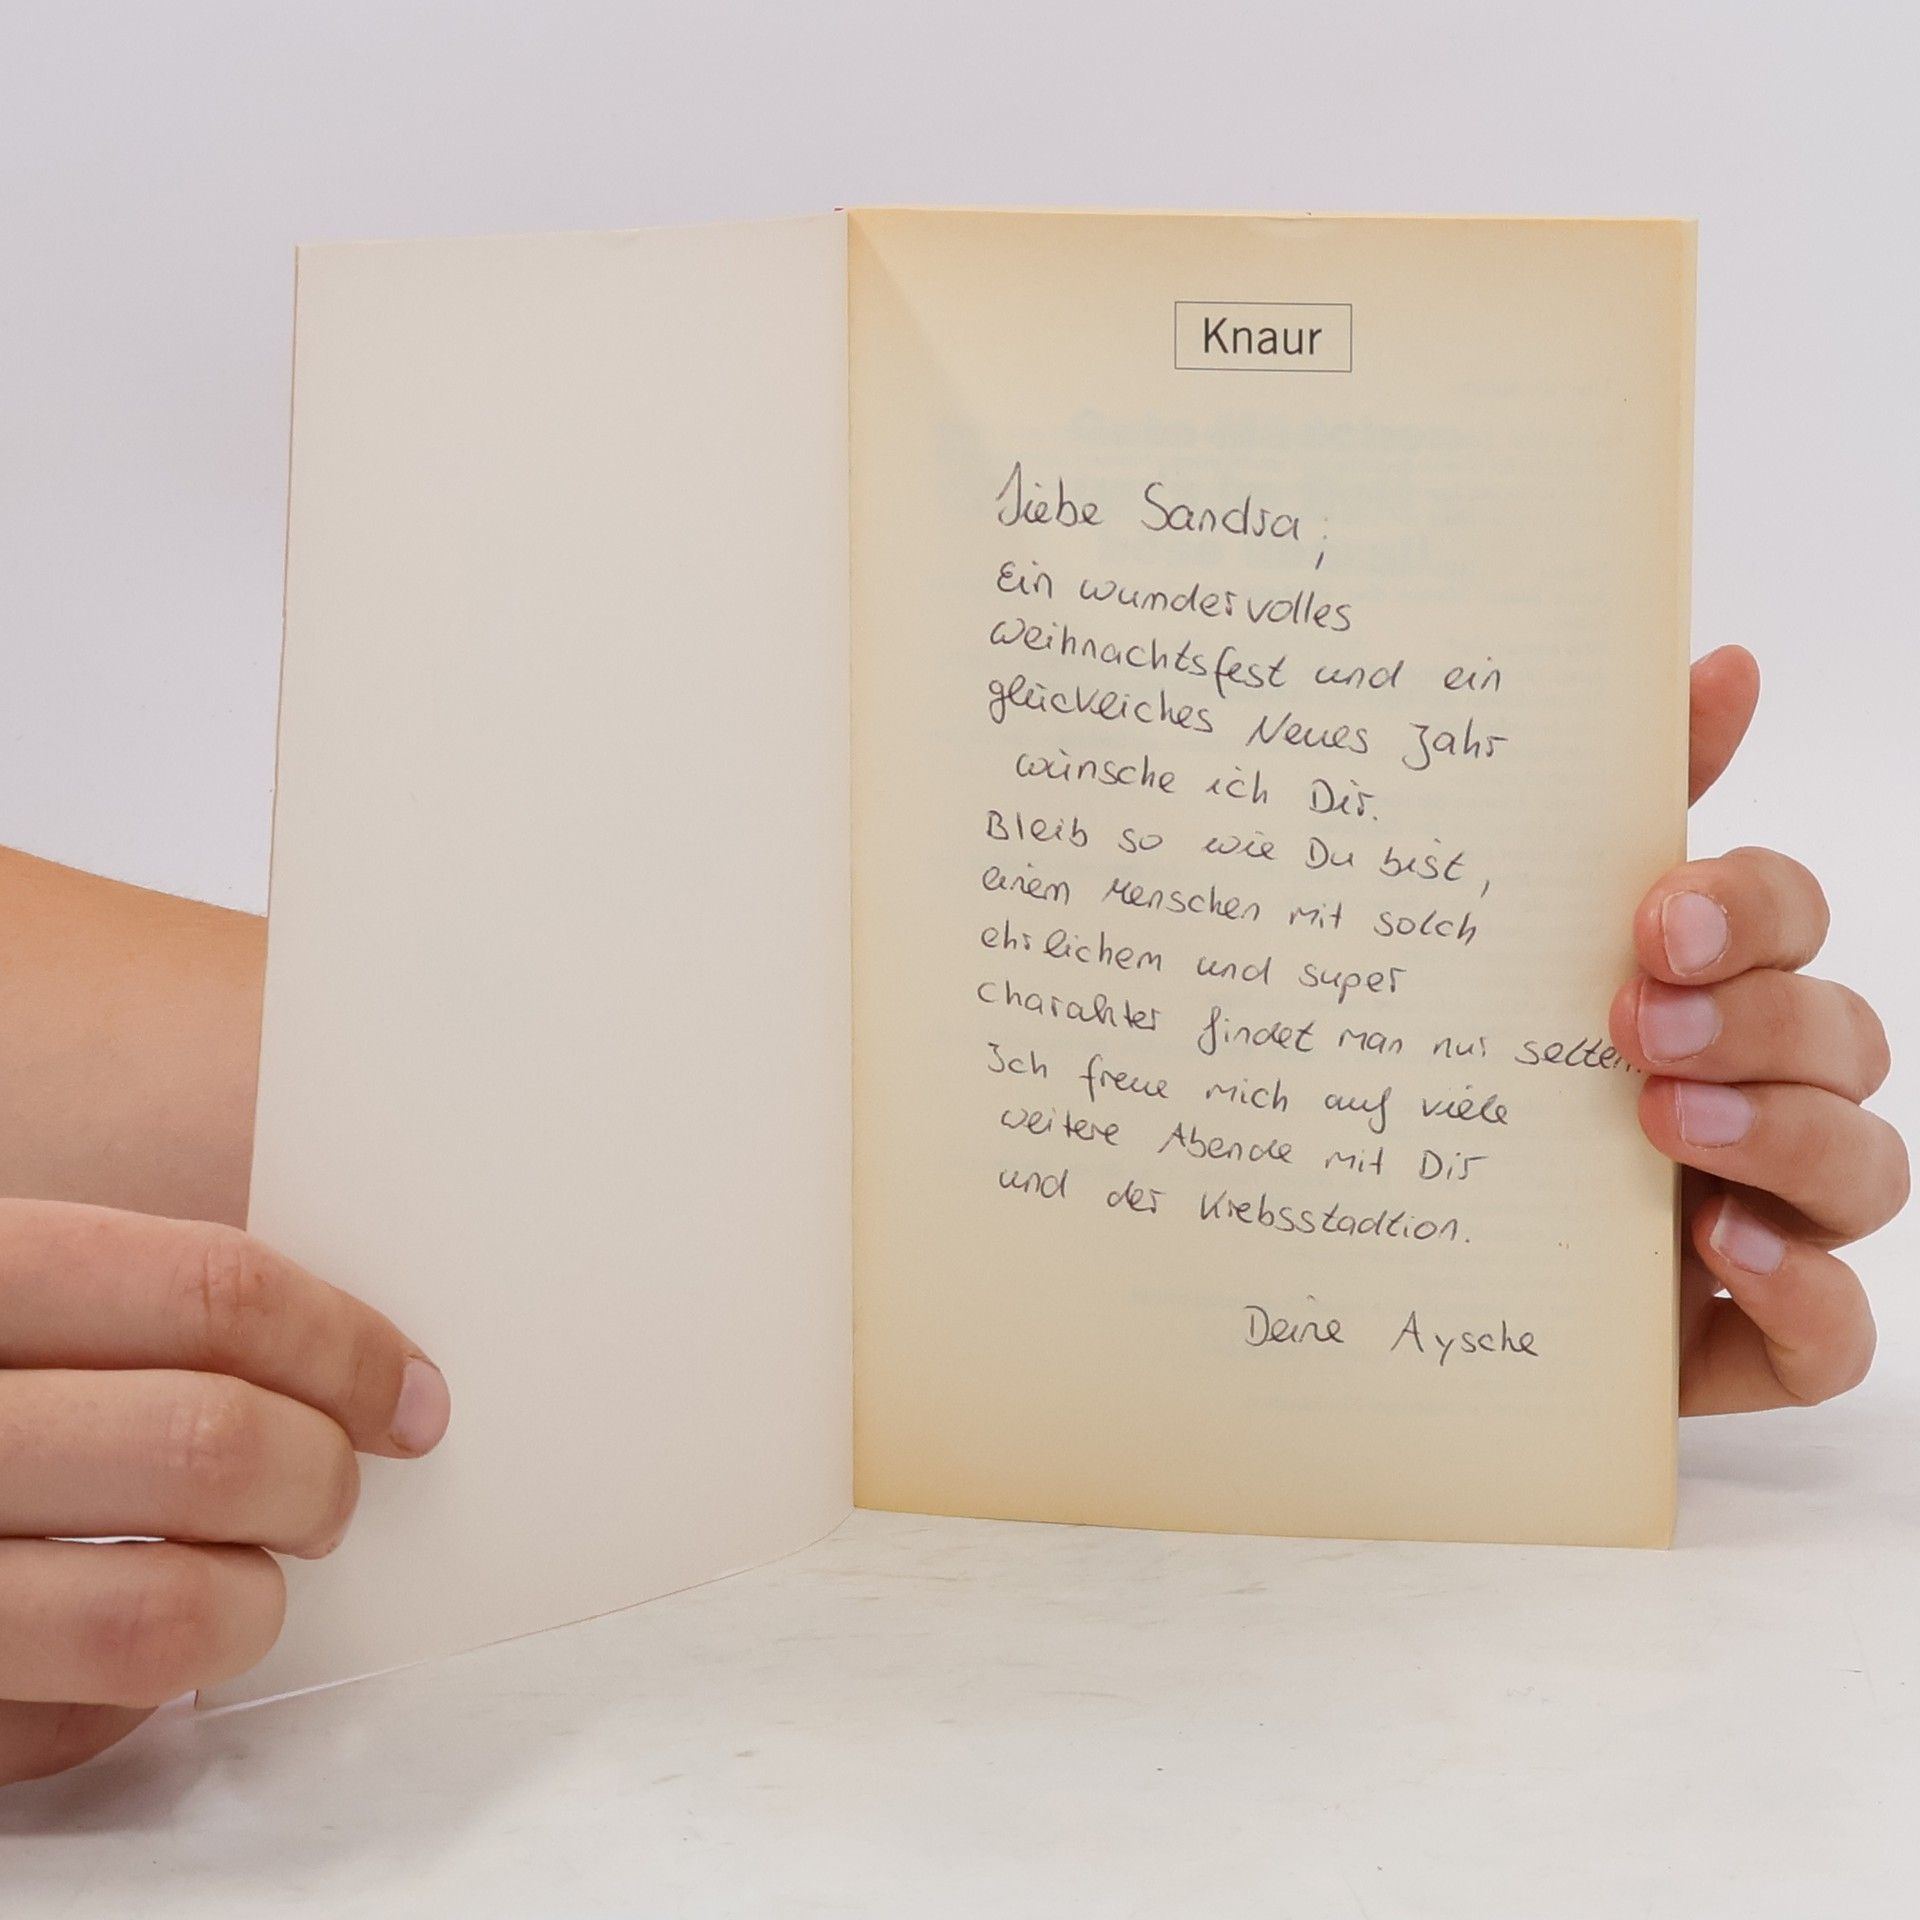 Knaur
Liebe Sandra,
Ein wundervolles
Weihnachtsfest und ein
glückliches Neues Jahr
wünsche ich Dir.
Bleib so wie Du bist,
einem Menschen mit solch
ehrlichem und super
Charakter findet man nur selten.
Ich freue mich auf viele
weitere Abende mit Dir
und der Krebsstadtion.
Deine Aysche